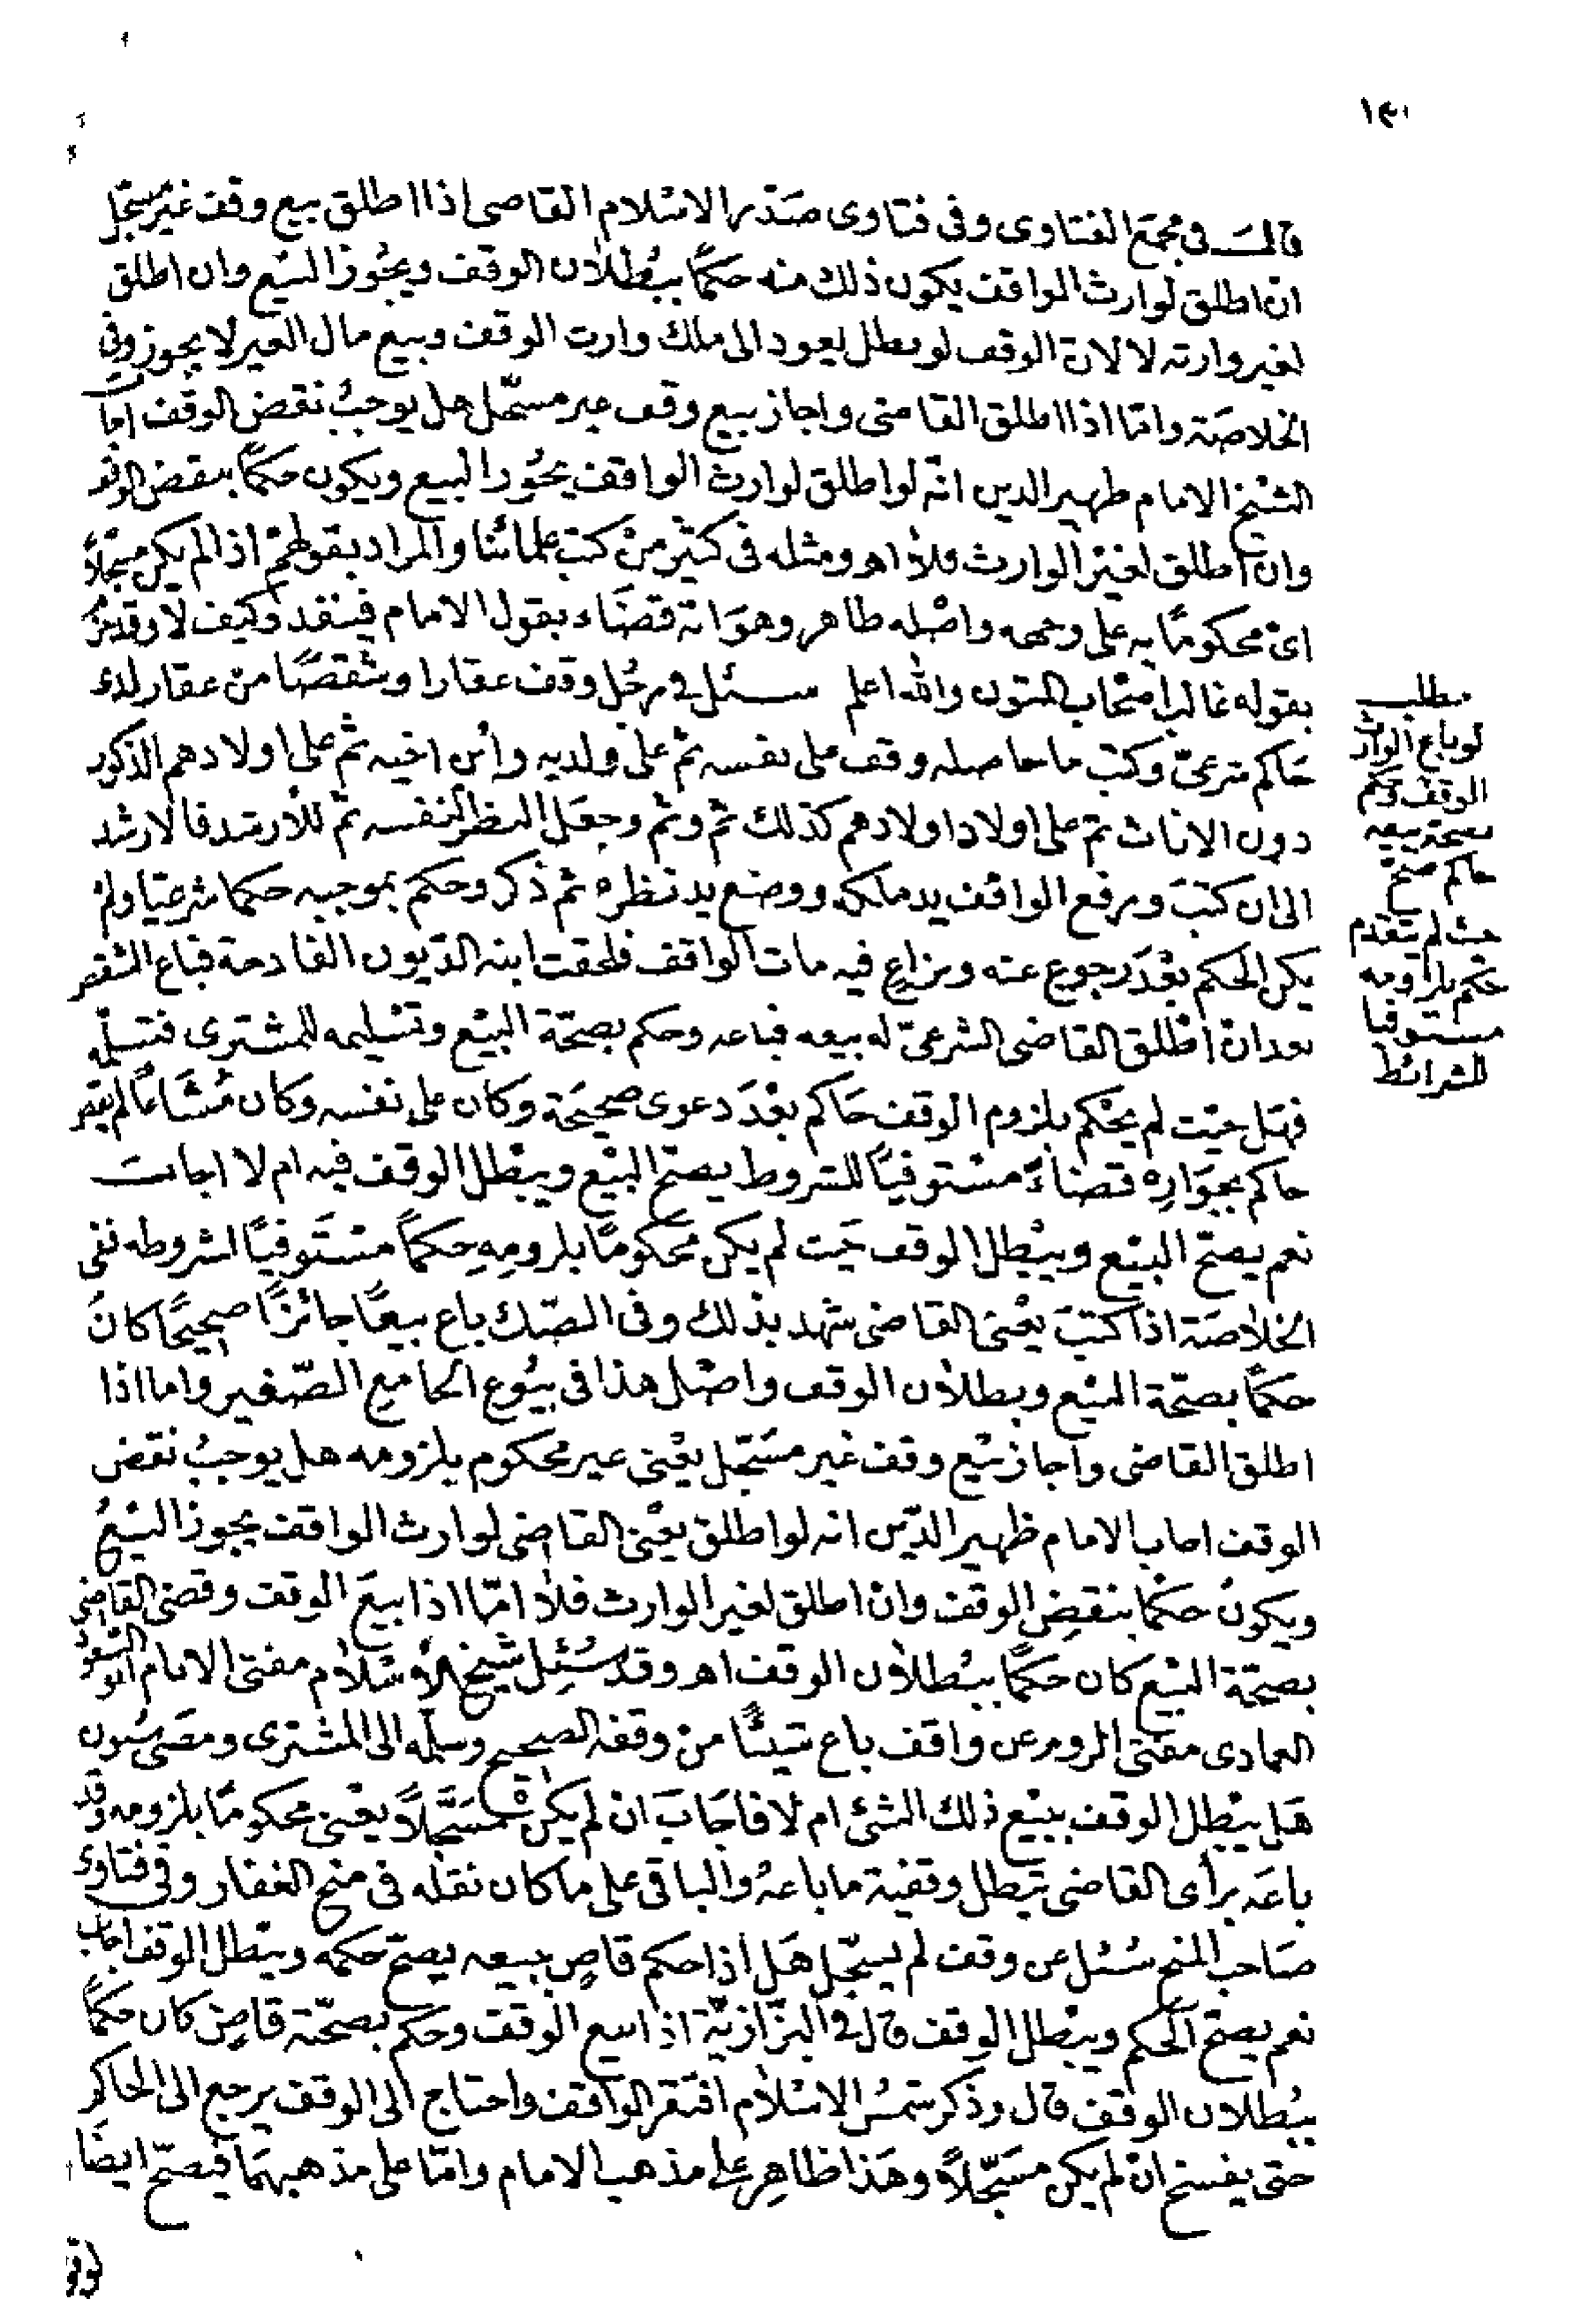 ١٣٠
قال في مجمع الفتاوى وفى فتاوى صدر الاسلام القاضى اذا اطلق بيع وقف غير مسجل
ان اطلق لوارث الواقف يكون ذلك منه حكماً ببُطلان الوقف ويجُوز البيع وان اطلق
لغير وارثه لا لان الوقف لو بطل يعود الى ملك وارث الوقف وبيع مال الغير لا يجوز وفى
الخلاصَة وامّا اذا اطلق القاضى واجاز بيع وقف غير مسجّل هل يوجبُ نقض الوقف اجاب
الشيخ الامام ظهير الدين انّه لو اطلق لوارث الواقف يجُوز البيع ويكون حكماً بنقض الوقف
وان اطلق لغيْر الوارث فلا اهـ ومثله فى كثير منْ كتب علمائنا والمراد بقولهمْ اذا لم يكن مسجلاً
اىْ محكومًا به على وجهه واصْله ظاهر وهوَ انه قضَاء بقول الامام فينفذ وكيف لا وقد مرّ
بقوله غالب اصْحاب المتون والله اعلم سئل فى رجُل وقف عقارا وشقصًا منْ عقار لدى
حَاكم شرعىّ وكتب ما حاصله وقف على نفسه ثمّ على ولديه وابْن اخيه ثم على اولادهم الذكور
دون الاناث ثم على اولاد اولادهم كذلك ثم وثم وجعَل النظر لنفسه ثم للأرشد فالارشد
الى ان كتبَ ورفع الواقف يد ملكه ووضع يد نظره ثم ذكر وحكم بموجبه حكما شرعيّا ولم
يكن الحكم بعْدَ رجوع عنه ونزاعٍ فيه مات الواقف فلحقت ابنه الدّيون الفادحة فباع الشقص
بعد انْ اطْلق القاضى الشرعىّ له بيعه فباعه وحكم بصحّة البيْع وتسْليمه للمشترى فتسلّمه
فهَل حيْث لم يحْكم بلزوم الوقف حَاكم بعْدَ دعوى صحيحَة وكان على نفسه وكان مُشَاعًا لم يقض
حاكم بجوَازِه قضاءً مسْتوفيًا للشروط يصحّ البيْع ويبْطل الوقف فيه ام لا اجاب
نعم يصحّ البيْع ويبْطل الوقف حَيث لم يكن محْكومًا بلزومِهِ حِكماً مسْتَوفيًا لشروطه ففى
الخلاصَة اذا كتبَ يعْنى القاضى شهد بذلك وفى الصّك باع بيعًا جائزًا صحيحًا كانَ
حكماً بصحّة البيْع وبطلان الوقف واصْل هذا فى بيُوع الجامع الصّغير واما اذا
اطلق القاضى واجاز بيْع وقف غير مسَجّل يعْنى غير محكوم بلزومه هل يوجبُ نقض
الوقف اجاب الامام ظهير الدّين انه لو اطلق يعْنى القاضى لوارث الواقف يجوز البيْعُ
ويكونُ حكمًا بنقضِ الوقف وانْ اطلق لغير الوارث فلا امّا اذا بيعَ الوقف وقضى القاضى
بصحّة البيْع كان حكمًا ببُطلان الوقف اهـ وقد سُئِل شيْخ الاسْلام مفتى الانام ابو السّعود
العمادى مفتى الروم عن واقف باع شيئًا منْ وقفه الصحيح وسلّمه الى المشترى ومضَى سُنون
هَل يبْطل الوقف ببيْع ذلك الشئ ام لا فاجَابَ ان لم يكن مسَجَّلاً يعْنى محكومًا بلزومه وقد
باعَه برأى القاضى يبْطل وقفية ما باعَهُ والباقى على ما كان نقله فى منح الغفار وفى فتاوى
صَاحب المنح سُئل عن وقف لم يسجّل هَل اذا حكم قاضٍ ببيعه يصحّ حكمه ويبْطل الوقف اجاب
نعم يصحّ الحكم ويبْطل الوقف قال فى البزّازيّة اذا بيع الوقف وحكم بصحّته قاضٍ كان حكماً
ببُطلان الوقف قال وذكر شمْسُ الاسْلام افتقر الواقف واحتاج الى الوقف يرجع الى الحاكم
حتى يفسخ انْ لم يكن مسَجّلاً وهَذا ظاهِر على مذهب الامام وامّا على مذهبهمَا فيصحّ ايضًا
لوقو
مطلب
لو باع الوارث
الوقف وحكم
بصحة بيعه
حاكم صحّ
حيث لم يتقدم
حكم بلزومه
مستوفيا
للشرائط